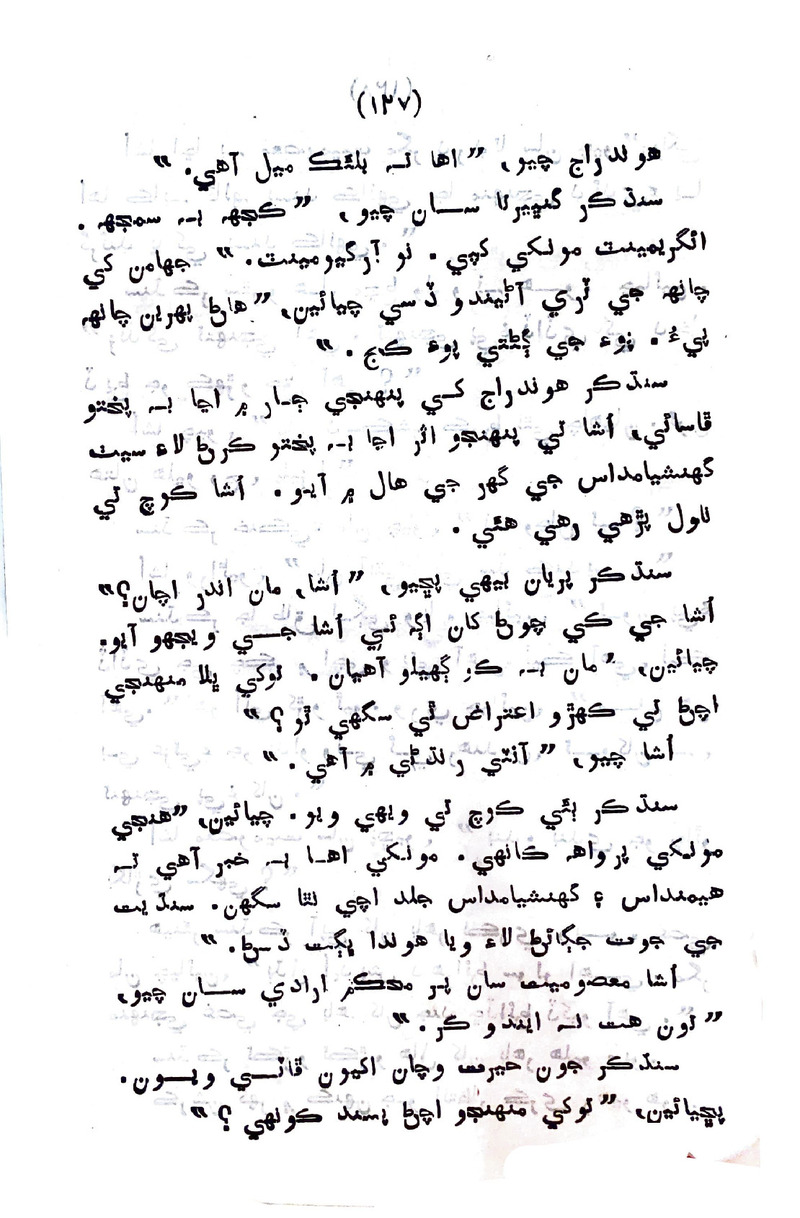 (١٣٧)
هوندراج چيو، ”اها تہ بلئڪ ميل آهي.“
سنڌڪر گنڀيرتا سان چيو، ”ڪجهہ بہ سمجهہ.
ائگريمينٽ مونکي کپي. نو آرگيومينٽ.“ جهامن کي
چانهہ جي ٽري آڻيندو ڏسي چيائين، ”هاڻ پهرين چانهہ
پيءُ. پوءِ جي ڳڻتي پوءِ ڪج.“
سنڌڪر هوندراج کي پنهنجي ڄار ۾ اڃا بہ پختو
ڦاسائي، اُشا تي پنهنجو اثر اڃا بہ پختو ڪرڻ لاءِ سيٺ
گهنشيامداس جي گهر جي هال ۾ آيو. اُشا ڪوچ تي
ناول پڙهي رهي هئي.
سنڌڪر پريان بيهي پڇيو، ”اُشا، مان اندر اچان؟“
اُشا جي ڪي چوڻ کان اڳہ ئي اُشا جي ويجهو آيو.
چيائين، ”مان بہ ڪو ڳهيلو آهيان. توکي ڀلا منهنجي
اچڻ تي ڪهڙو اعتراض ٿي سگهي ٿو؟“
اُشا چيو، ”آنٽي رنڌڻي ۾ آهي.“
سنڌڪر ٻئي ڪوچ تي ويهي ويو. چيائين، ”هنجي
مونکي پرواهہ ڪانهي. مونکي اها بہ خبر آهي تہ
هيمنداس ۽ گهنشيامداس جلد اچي نٿا سگهن. سنڌيت
جي جوت جڳائڻ لاءِ ويا هوندا ڀڳت ڏسڻ.“
اُشا معصوميت سان پر محڪم ارادي سان چيو،
”تون هت نہ ايندو ڪر.“
سنڌڪر جون حيرت وچان اکيون ڦاٽي ويون.
پڇيائين، ”توکي منهنجو اچڻ پسند ڪونهي؟“